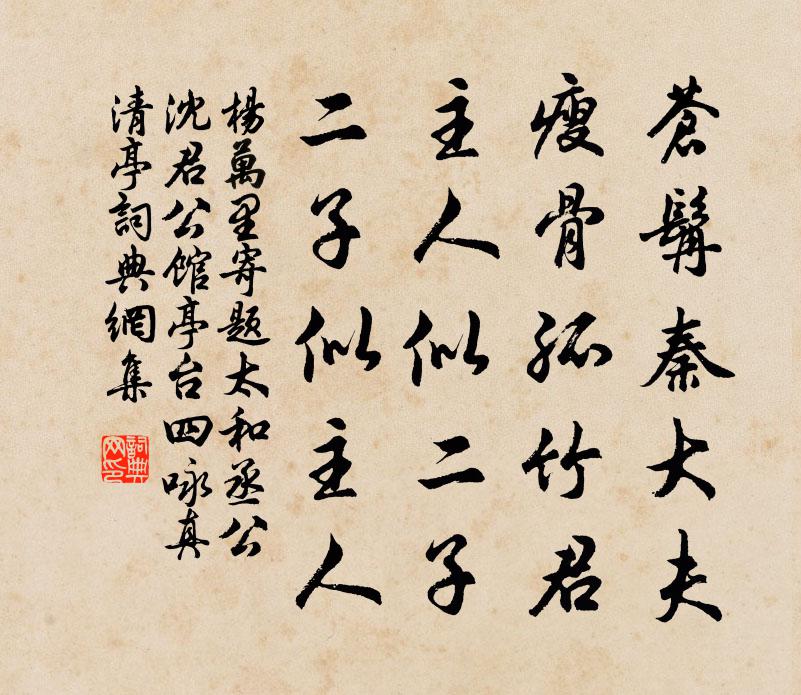 蒼髯秦大夫
瘦骨孤竹君
主人似二子
二子似主人
楊萬里寄題太和丞公
沈君公館亭台四咏真
清亭詞典網集
詞典网印